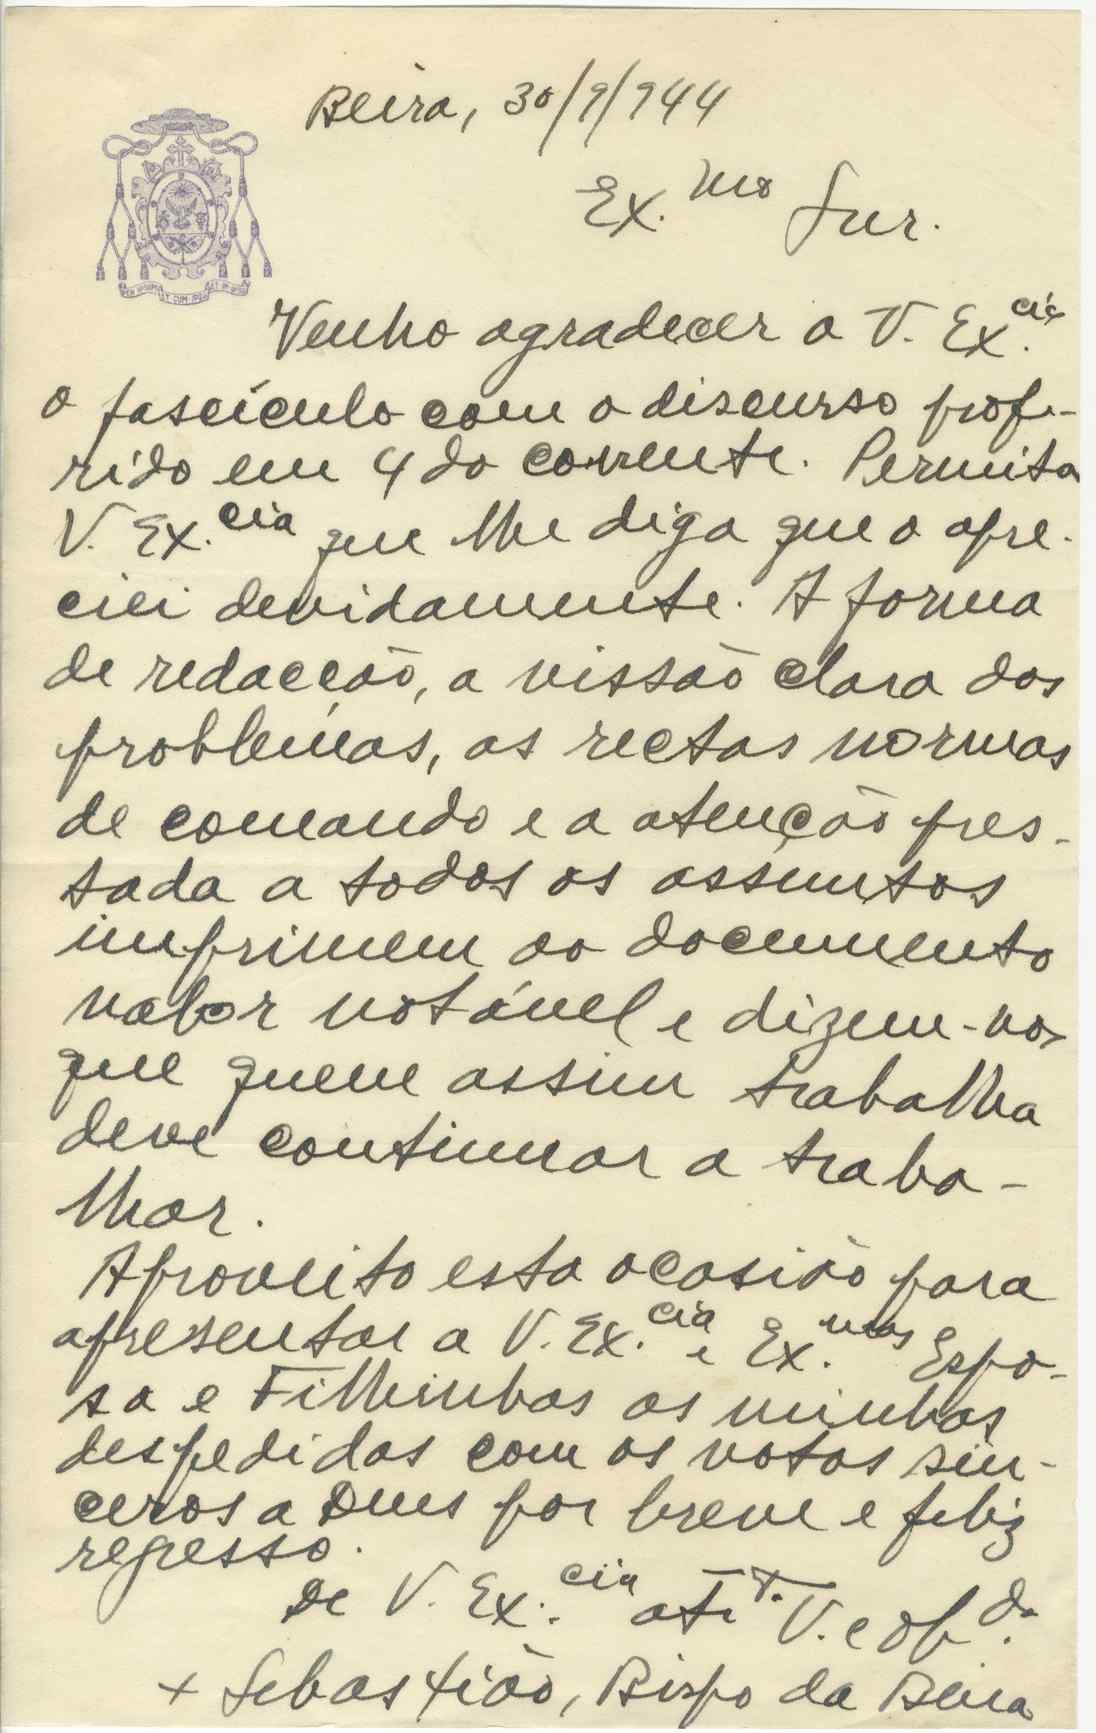 Beira, 30/9/944
Ex.mo Snr.
Venho agradecer a V. Ex.cia
o fascículo com o discurso profe-
rido em 4 do corrente. Permita
V. Ex.cia que lhe diga que o apre-
ciei devidamente. A forma
de redacção, a vissão clara dos
problemas, as rectas normas
de comando e a atenção pres-
tada a todos os assuntos
imprimem ao documento
valor notável e dizem-nos
que quem assim trabalha
deve continuar a traba-
lhar.
Aproveito esta ocasião para
apresentar a V. Ex.cia e Ex.mas Espo-
sa e Filhinhas as minhas
despedidas com os votos sin-
ceros a Deus por breve e feliz
regresso.
De V. Ex.cia at.t.º V. e ob.do
+ Sebastião, Bispo da Beira